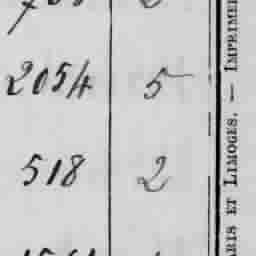 2054 5
518 2
ARIS ET LIMOGES. — IMPRIME